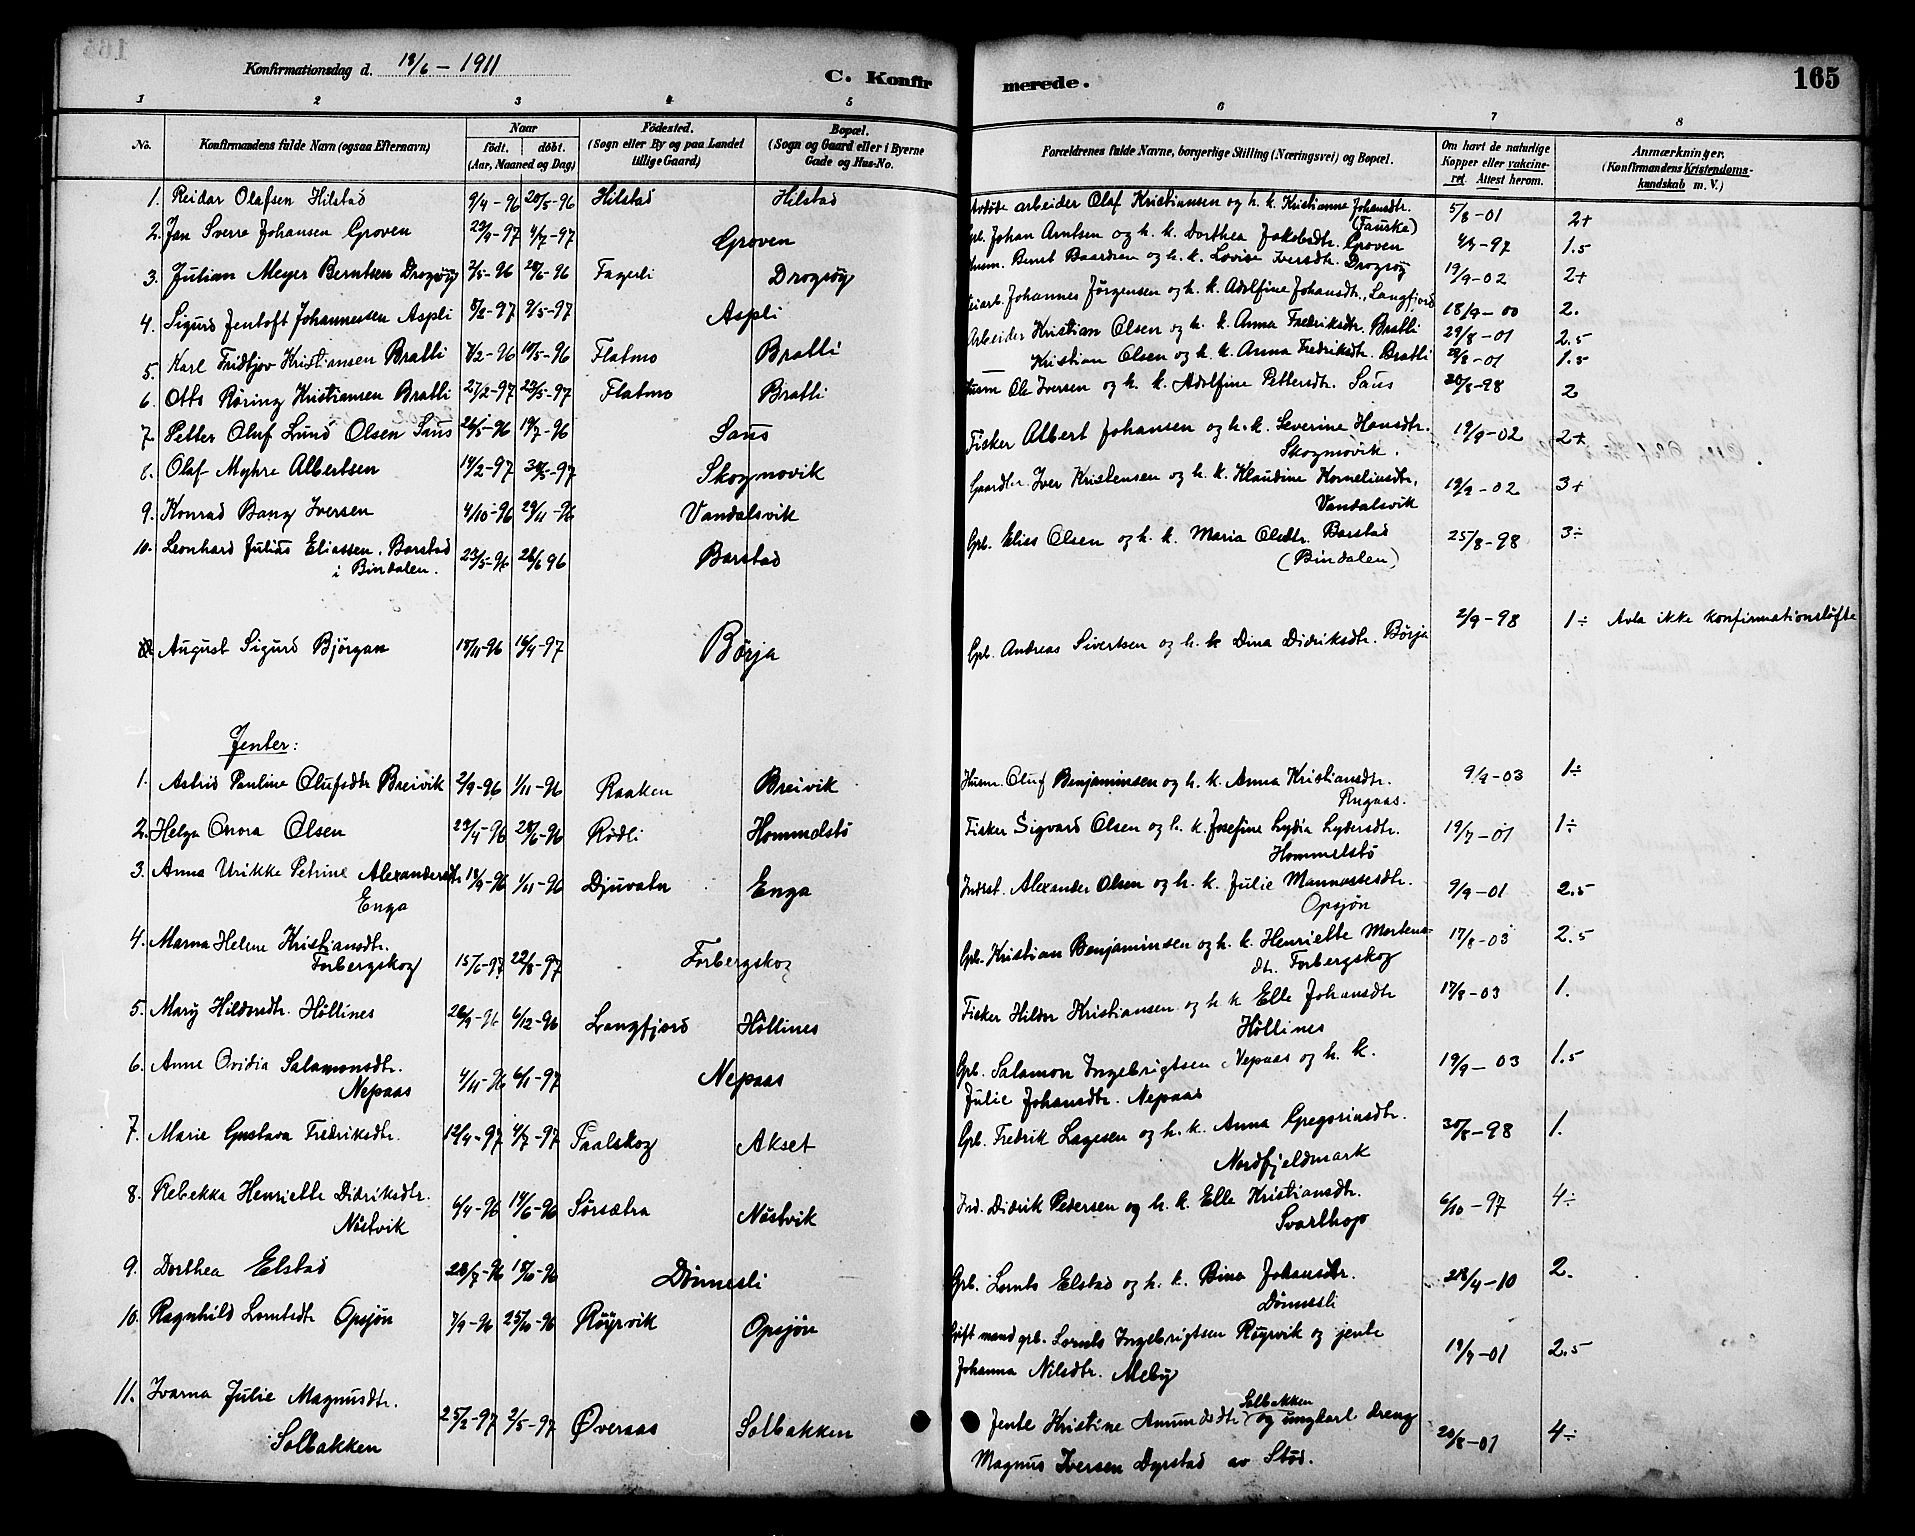 Konfirmationsdag d. 18/6 - 1911
C. Konfirmerede.
165
1 2 3 4 5 6 7 8
No.
Konfirmandens fulde Navn (ogsaa Efternavn)
Naar
födt. döbt.
(Aar, Maaned og Dag)
Födested.
(Sogn eller By og paa Landet
tillige Gaard)
Bopæl.
(Sogn og Gaard eller i Byerne
Gade og Hus-No.
Forældrenes fulde Navne, borgerlige Stilling (Næringsvei) og Bopæl.
Om havt de naturlige
Kopper eller vakcine-
ret. Attest herom.
Anmærkninger.
(Konfirmandens Kristendoms-
kundskab m. V.)
1. Reidar Olafsen Hilstad 9/4-96 20/5-96 Hilstad Hilstad arbeider Olaf Kristiansen og h. k. Kristianne Johansdtr. 5/8-01 2+
(Fauske)
2. Jan Sverre Johansen Groven 4/7-97 Groven Gpb. Johan Arntsen og h. k. Dorthea Jakobsdtr. Groven 1.5
3. Julian Meyer Berntsen Drogsøy 2/5-96 28/6-96 Fagerli Drogsøy Husm. Bernt Baardsen og h. k. Lovise Iversdtr. Drogsøy 19/9-02 2+
4. Sigurd Jentoft Johannessen Aspli 8/2-97 9/5-97 Aspli Johannes Jörgensen og h. k. Adolfine Johansdtr., Langfjord 18/9-00 2.
5. Karl Fridtjov Kristiansen Bratli 7/2-96 10/5-96 Flatmo Bratli Arbeider Kristian Olsen og h. k. Anna Fredriksdtr. Bratli 29/8-01 2.5
6. Otto Röring Kristiansen Bratli 27/2-97 23/5-97 Flatmo Bratli Kristian Olsen og h. k. Anna Fredriksdtr. Bratli 29/8-01 1.5
7. Petter Oluf Lund Olsen Saus 26/5-96 19/7-96 Saus Husm Ole Iversen og h. k. Adolfine Pettersdtr. Saus 30/8-98 2
8. Olaf Myhre Albertsen 14/2-97 30/5-97 Skogmovik Fisker Albert Johansen og h. k. Severine Hansdtr. 19/9-02 2+
Skogmovik.
9. Konrad Bang Iversen 4/10-96 29/11-96 Vandalsvik Gaardbr. Iver Kristensen og h. k. Klaudine Korneliusdtr. 19/9-02 3+
Vandalsvik
10. Leonhard Julius Eliassen. Barstad 23/5-96 28/6 96 Barstad Gpb. Elias Olsen og h. k. Maria Olsdtr. Barstad 25/8-98 3÷
i Bindalen. (Bindalen)
August Sigurd Bjørgan 18/11-96 16/4-97 Børja Gpb. Andreas Sivertsen og h. k Dina Didriksdtr. Børja 2/9-98 1÷ Avla ikke konfirmationsløfte
Jenter:
1. Astrid Pauline Olufsdtr Breivik 2/9-96 1/11-96 Raaken Breivik Husm. Oluf Benjaminsen og h. k. Anna Kristiansdtr. 9/9-03 1÷
Rugaas.
2. Helga Onora Olsen 23/4-96 28/6-96 Rödli Hommelstö Fisker Sigvard Olsen og h. k. Josefine Lydia Lydersdtr. 19/7-01 1÷
Hommelstö
3. Anna Urikke Petrine Alexandersdtr 18/9-96 1/11-96 Djuvatn Enga Inderst. Alexander Olsen og h. k. Julie Mannassesdtr. 9/9-01 2.5
Enga Opsjøn
4. Marna Helene Kristiansdtr. 15/6-97 22/8-97 Forbergskog Gpb. Kristian Benjaminsen og h. k. Henriette Mortens- 17/8-03 2.5
Forbergskog dtr. Forbergskog
5. Mary Hildorsdtr. Höllines 26/9-96 6/12-96 Langfjord Höllines Fisker Hildor Kristiansen og h. k Elle Johansdtr 17/8-03 1.
Höllines
6. Anne Ovidia Salamonsdtr. 4/11-96 6/1-97 Nepaas Gpb. Salamon Ingebrigtsen Nepaas og h. k. 19/9-03 1.5
Nepaas Julie Johansdtr. Nepaas
7. Marie Gustava Fredriksdtr. 12/4-97 4/7-97 Paalskog Akset Gpb. Fredrik Lagesen og h. k. Anna Gregoriusdtr. 30/8-98 1.
Nordfjeldmark
8. Rebekka Henriette Didriksdtr. 6/4-96 14/6-96 Sörsætra Nöstvik Ind. Didrik Pedersen og h. k. Elle Kristiansdtr. 6/10-97 4÷
Nöstvik Svarthop
9. Dorthea Elstad 28/7-96 18/10-96 Dönnesli Gpb. Lornts Elstad og h. k. Bina Johansdtr. 28/4-10 2.
Dönnesli
10. Ragnhild Lorntsdtr Opsjøn 7/9-96 25/10-96 Røyrvik Opsjøn Gift mand gpb. Lornts Ingebrigtsen Røyrvik og jente 19/7-01 2.5
Johanna Nilsdtr. Aleby
11. Ivarna Julie Magnusdtr. 25/2-97 2/5-97 Øveraas Solbakken Jente Kristine Amundsdtr Solbakken og ungkarl dreng 20/8-01 4÷
Solbakken Magnus Iversen Dyrstad av Stod.